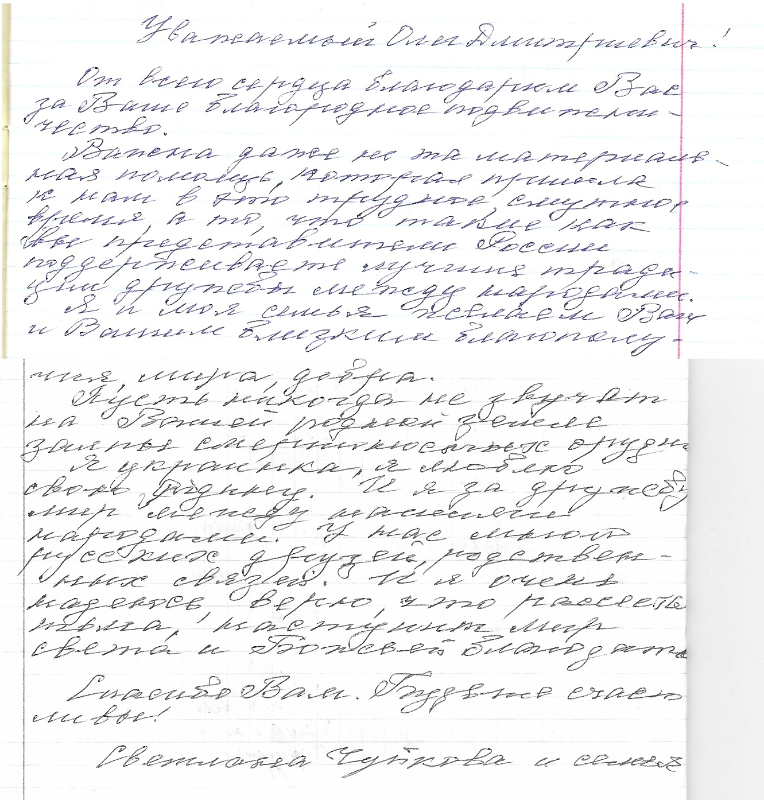 Уважаемый Олег Дмитриевич!
От всего сердца благодарим Вас
за Ваше благородное подвижни-
чество.
Важна даже не та материаль-
ная помощь, которая пришла
к нам в это трудное, смутное
время, а то, что такие как
вы представители России
поддерживаете лучшие тради-
ции дружбы между народами.
Я и моя семья желаем Вам
и Вашим близким благополу-
чия, мира, добра.
Пусть никогда не звучат
на Вашей родной земле
залпы смертоносных оруди
Я украинка, я люблю
свою Родину. И я за дружбу
мир между нашими
народами. У нас много
русских друзей, родствен-
ных связей. И я очень
надеюсь, верю, что рассеется
тьма, наступит мир
света и Божьей благодати
Спасибо Вам. Будьте счаст
ливы!
Светлана Чуйкова и семья